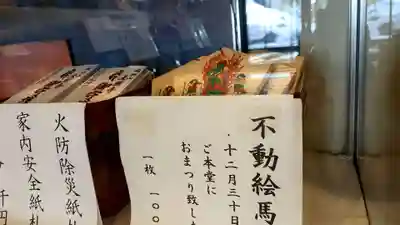 不動絵馬
十二月三十日
ご本堂に
おまつり致し
一枚 一〇〇
火防除災紙札
家内安全紙札
千円